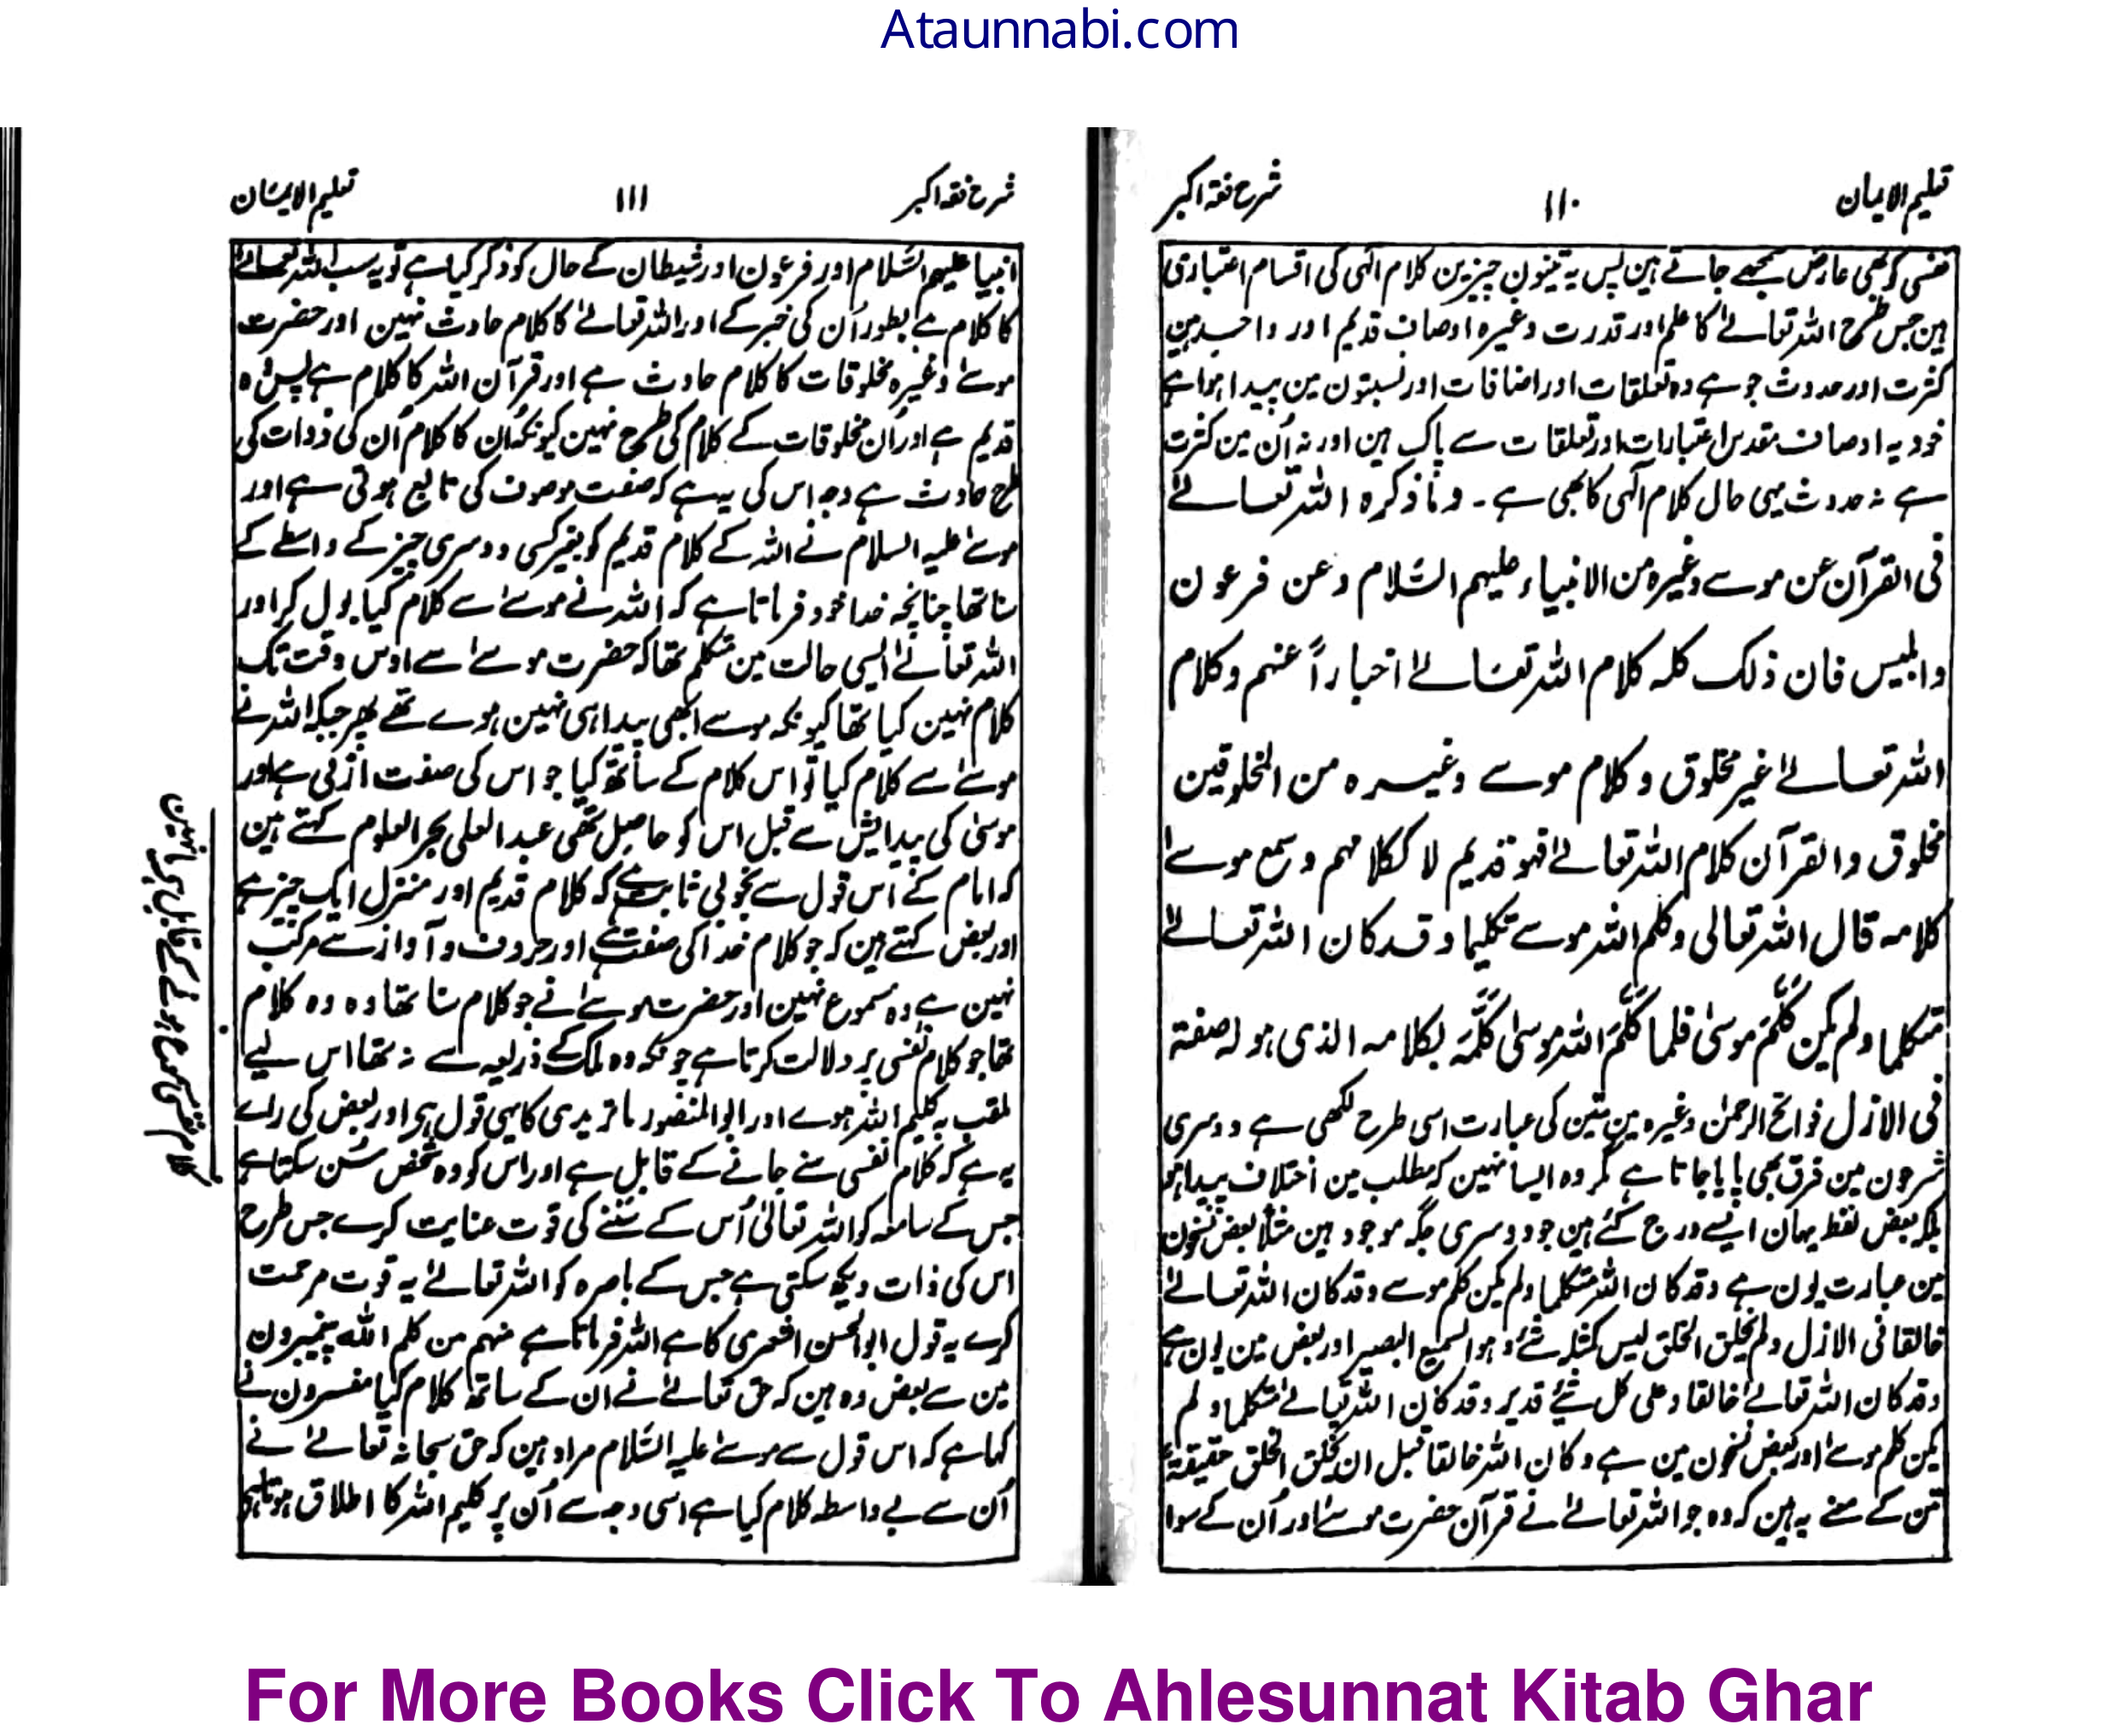 Ataunnabi.com
تعلیم الایمان
۱۱۰
شرح فقہ اکبر
نفسی کو بھی عارض سمجھے جاتے ہین پس یہ تینون چیزین کلام الٰہی کی اقسام اعتباری
ہین جس طرح اللہ تعالےٰ کا علم اور قدرت وغیرہ اوصاف قدیم اور واحد ہین
کثرت اور حدوث جو ہے وہ تعلقات اور اضافات اور نسبتون مین پیدا ہوا ہے
خود یہ اوصاف مقدس اعتبارات اور تعلقات سے پاک ہین اور نہ اُن مین کثرت
ہے نہ حدوث یہی حال کلام الٰہی کا بھی ہے ۔ وما ذکرہ اللہ تعالےٰ
فی القرآن عن موسے وغیرہ من الانبیاء علیہم السّلام وعن فرعون
وابلیس فان ذلک کلہ کلام اللہ تعالےٰ اخباراً عنہم وکلام
اللہ تعالےٰ غیر مخلوق وکلام موسے وغیرہ من المخلوقین
مخلوق والقرآن کلام اللہ تعالےٰ فہو قدیم لا ککلامہم وسمع موسےٰ
کلامہ قال اللہ تعالی وکلم اللہ موسے تکلیما وقد کان اللہ تعالےٰ
متکلما ولم یکن کَلَّمَ موسیٰ فلما کَلَّمَ اللہ موسیٰ کَلَّمَہ بکلامہ الذی ہو لہ صفۃ
فی الازل فواتح الرحمن وغیرہ مین متن کی عبارت اسی طرح لکھی ہے دوسری
شرحون مین فرق بھی پایا جاتا ہے مگر وہ ایسا نہین کہ مطلب مین اختلاف پیدا ہو
بلکہ بعض لفظ یہان ایسے درج کئے ہین جو دوسری جگہ موجود ہین مثلاً بعض نسخون
مین عبارت یون ہے وقد کان اللہ متکلما ولم یکن کلم موسے وقد کان اللہ تعالےٰ
خالقا فی الازل ولم یخلق الخلق لیس کمثلہ شئے وہو السمیع البصیر اور بعض مین یون ہے
وقد کان اللہ تعالےٰ خالقا وعلی کل شئے قدیر وقد کان اللہ تعالےٰ متکلما ولم
یکن کلم موسےٰ اور بعض نسخون مین ہے وکان اللہ خالقا قبل ان یخلق الخلق حقیقۃً
متن کے معنے یہ ہین کہ وہ جو اللہ تعالےٰ نے قرآن حضرت موسےٰ اور اُن کے سوا
شرح فقہ اکبر
۱۱۱
تعلیم الایمان
انبیا علیہم السّلام اور فرعون اور شیطان کے حال کو ذکر کیا ہے تو یہ سب اللہ تعالےٰ
کا کلام ہے بطور اُن کی خبر کے اور اللہ تعالےٰ کا کلام حادث نہین اور حضرت
موسےٰ وغیرہ مخلوقات کا کلام حادث ہے اور قرآن اللہ کا کلام ہے پس وہ
قدیم ہے اور اُن مخلوقات کے کلام کی طرح نہین کیونکہ اُن کا کلام اُن کی ذوات کی
طرح حادث ہے وجہ اس کی یہ ہے کہ صفت موصوف کی تابع ہوتی ہے اور
موسےٰ علیہ السلام نے اللہ کے کلام قدیم کو بغیر کسی دوسری چیز کے واسطے کے
سنا تھا چنانچہ خدا خود فرماتا ہے کہ اللہ نے موسےٰ سے کلام کیا بول کر اور
اللہ تعالےٰ ایسی حالت مین متکلم تھا کہ حضرت موسےٰ سے اوس وقت تک
کلام نہین کیا تھا کیونکہ موسے ابھی پیدا ہی نہین ہوے تھے پھر جبکہ اللہ نے
موسےٰ سے کلام کیا تو اس کلام کے ساتھ کیا جو اس کی صفت ازلی ہے اور
موسیٰ کی پیدایش سے قبل اس کو حاصل تھی عبد العلی بحر العلوم کہتے ہین
کہ امام کے اس قول سے بخوبی ثابت ہے کہ کلام قدیم اور منزل ایک چیز ہے
اور بعض کہتے ہین کہ جو کلام خدا کی صفت ہے اور حروف و آواز سے مرکب
نہین ہے وہ مسموع نہین اور حضرت موسےٰ نے جو کلام سنا تھا وہ وہ کلام
تھا جو کلام نفسی پر دلالت کرتا ہے چونکہ وہ ملک کے ذریعہ سے نہ تھا اس لیے
ملقب بہ کلیم اللہ ہوے اور ابو المنصور ماتریدی کا یہی قول ہی اور بعض کی راے
یہ ہے کہ کلام نفسی سنے جانے کے قابل ہے اور اس کو وہ شخص سُن سکتا ہے
جس کے سامعہ کو اللہ تعالیٰ اُس کے سننے کی قوت عنایت کرے جس طرح
اس کی ذات دیکھ سکتی ہے جس کے باصرہ کو اللہ تعالےٰ یہ قوت مرحمت
کرے یہ قول ابو الحسن اشعری کا ہے اللہ فرماتا ہے منہم من کلم اللہ پیغمبرون
مین سے بعض وہ ہین کہ حق تعالےٰ نے ان کے ساتھ کلام کیا مفسرون نے
کہا ہے کہ اس قول سے موسےٰ علیہ السّلام مراد ہین کہ حق سبحانہ تعالےٰ نے
اُن سے بے واسطہ کلام کیا ہے اسی وجہ سے اُن پر کلیم اللہ کا اطلاق ہوتا ہی
کلام نفسی مسموع ہونے کے قابل ہی یا نہین
For More Books Click To Ahlesunnat Kitab Ghar